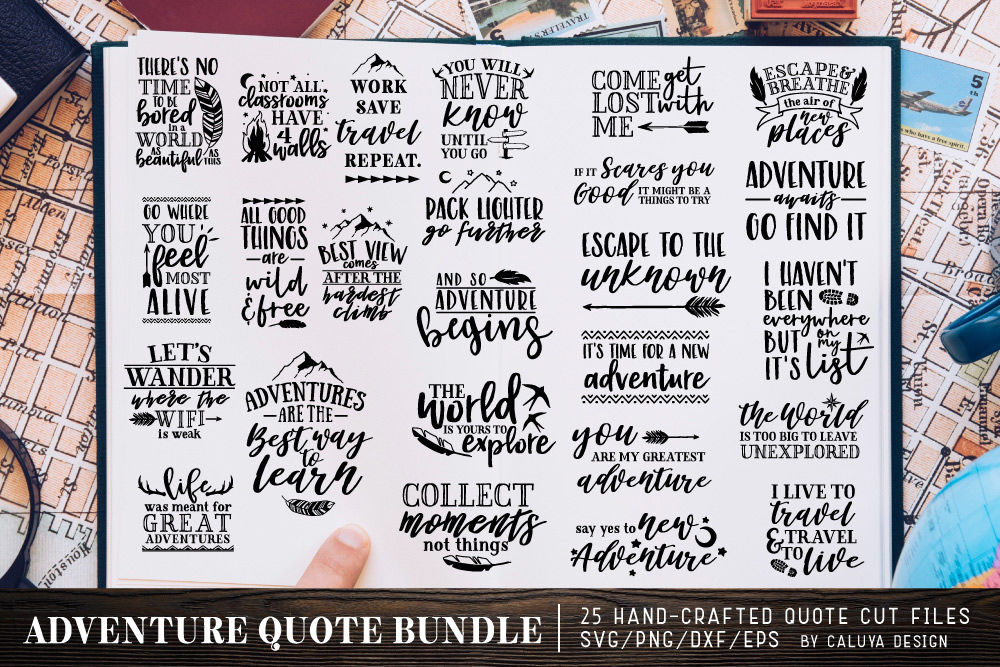 THERE'S NO
TIME
TO BE
bored
in a
WORLD
AS
beautiful
AS THIS
NOT ALL
classrooms
HAVE
4
walls
WORK
SAVE
travel
REPEAT.
YOU WILL
NEVER
know
UNTIL
YOU GO
COME get
LOST with
ME
ESCAPE &
BREATHE
the air of
new
places
GO WHERE
YOU
feel
MOST
ALIVE
ALL GOOD
THINGS
are
wild
& free
BEST VIEW
comes
AFTER THE
hardest
climb
PACK LIGHTER
go further
IF IT Scares you
Good IT MIGHT BE A
THINGS TO TRY
ADVENTURE
awaits
GO FIND IT
AND SO
ADVENTURE
begins
ESCAPE TO THE
unknown
I HAVEN'T
BEEN
everywhere
BUT on my
IT'S list
LET'S
WANDER
where the
WIFI
is weak
ADVENTURES
ARE THE
Best way
to
learn
THE
world
IS YOURS TO
explore
IT'S TIME FOR A NEW
adventure
you
ARE MY GREATEST
adventure
the world
IS TOO BIG TO LEAVE
UNEXPLORED
life
was meant for
GREAT
ADVENTURES
COLLECT
moments
not things
say yes to new
Adventure
I LIVE TO
travel
& TRAVEL
TO live
TRAVELER'S
5th
who have a free spirit.
ADVENTURE QUOTE BUNDLE
25 HAND-CRAFTED QUOTE CUT FILES
SVG/PNG/DXF/EPS BY CALUYA DESIGN